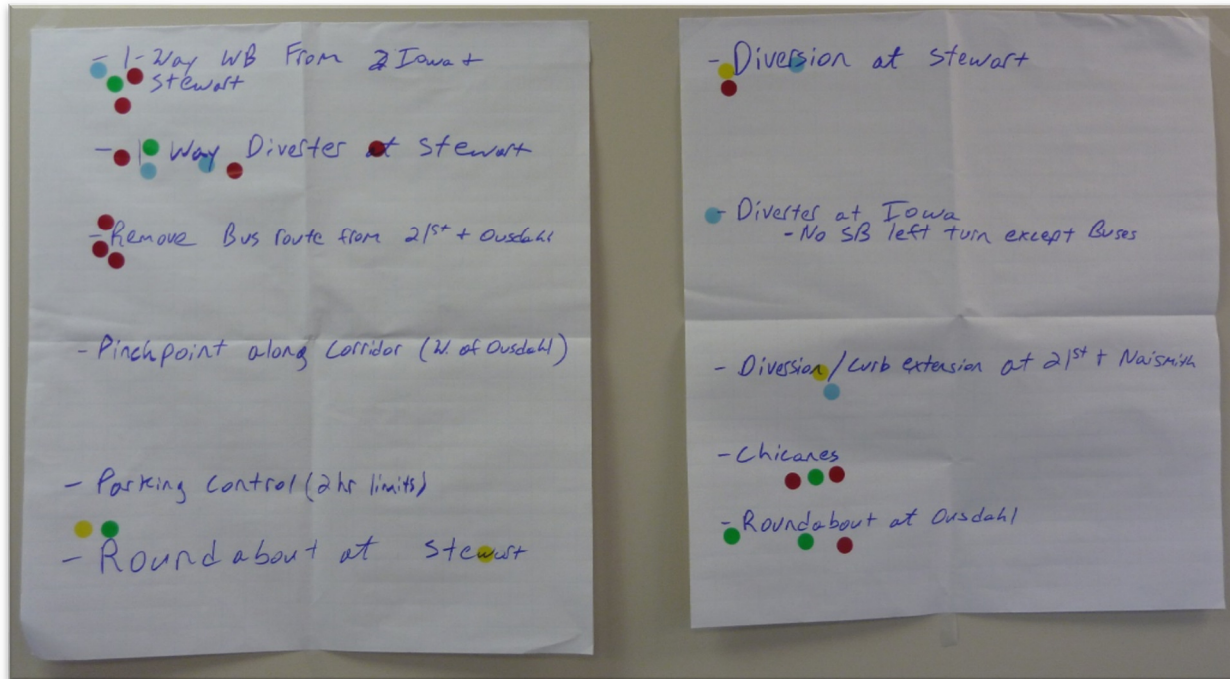 - 1-Way WB From Iowa +
Stewart
- 1 Way Diverter at Stewart
- Remove Bus route from 21st + Ousdahl
- Pinchpoint along Corridor (W. of Ousdahl)
- Parking Control (2hr limits)
- Roundabout at Stewart
- Diversion at Stewart
- Diverter at Iowa
- No SB left turn except Buses
- Diversion/curb extension at 21st + Naismith
- Chicanes
- Roundabout at Ousdahl